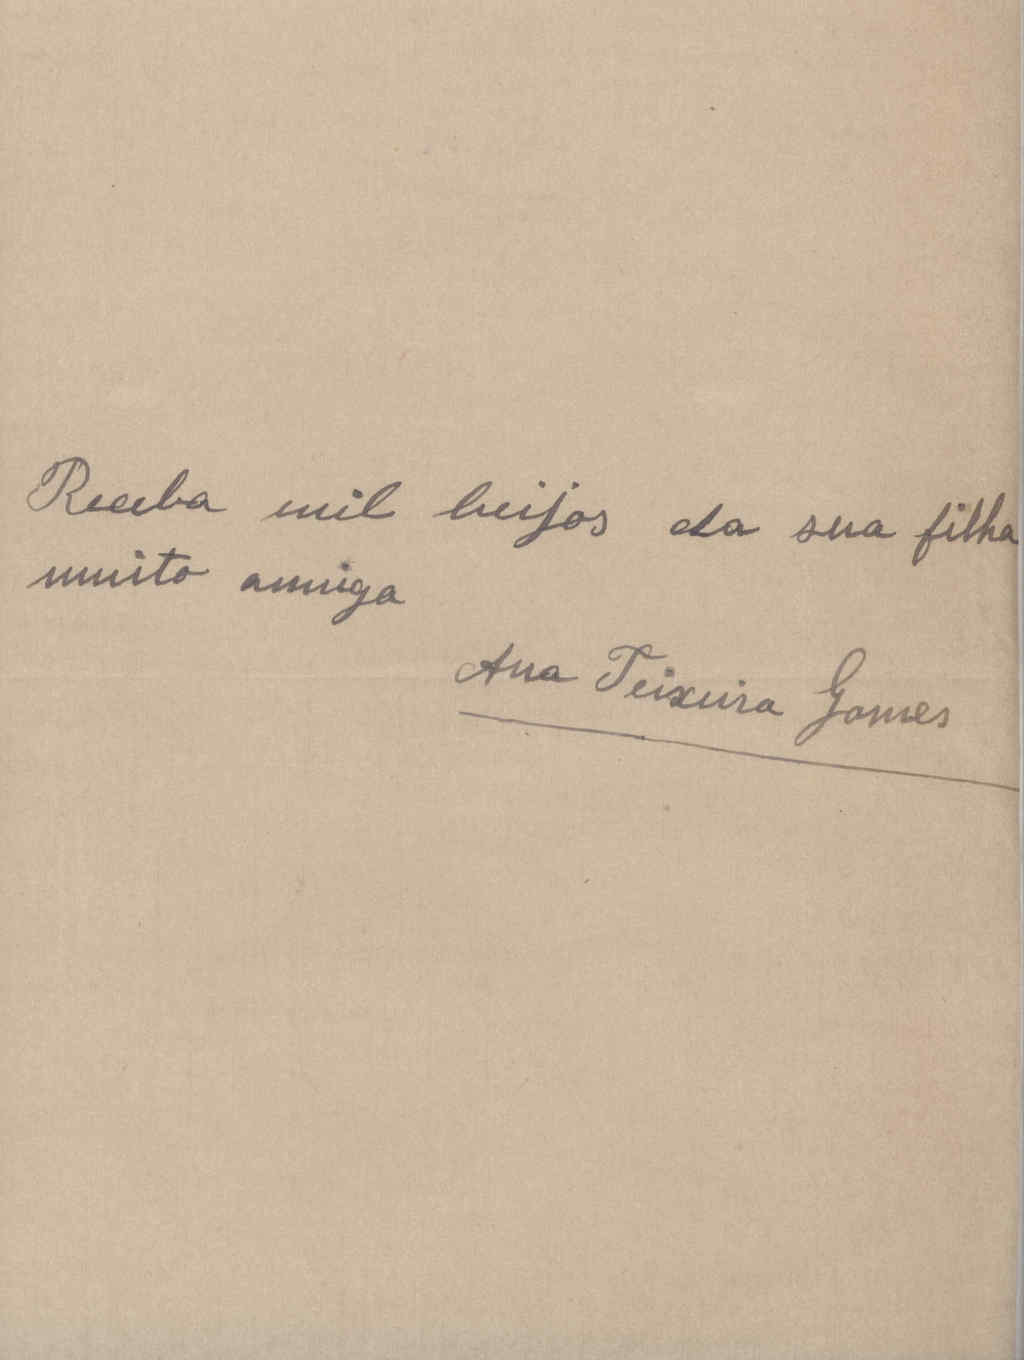 Receba mil beijos da sua filha
muito amiga
Ana Teixeira Gomes